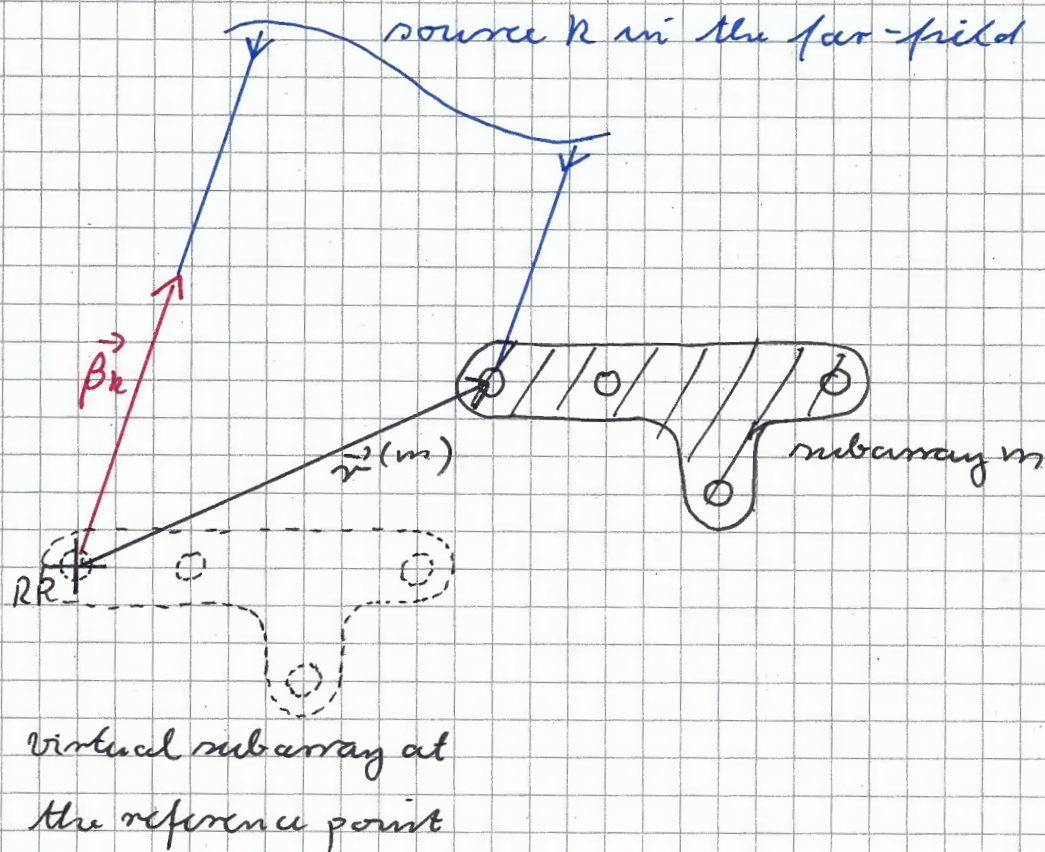 source k in the far-field
β⃗k
r⃗(m)
subarray m
RR
virtual subarray at
the reference point